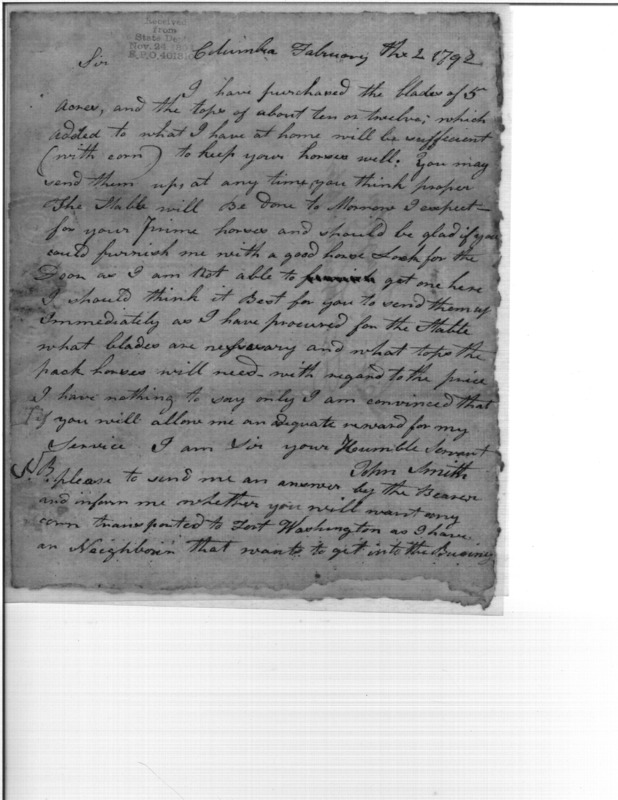 Received
from
State De
Nov. 24
R.P.O. 4018
Columbia February the 2 1792
Sir
I have purchased the blades of 5
acres, and the tops of about ten or twelve; which
added to what I have at home will be sufficient
(with corn) to keep your horses well: You may
send them up, at any time you think proper
The Stable will Be done to Morrow I expect—
for your Prime horses and should be glad if you
could furnish me with a good horse Lock for the
Door as I am Not able to get one here
I should think it Best for you to send them up
Immediately as I have procured for the Stable
what blades are nessesary and what tops the
pack horses will need - with regard to the price
I have nothing to say only I am convinced that
you will allow me an adequate reward for my
Service I am Sir your Humble Servent
John Smith
N.B. please to send me an answer by the Bearer
and inform me whether you will want any
corn transported to Fort Washington as I have
an Neighbour that wants to get into the Business